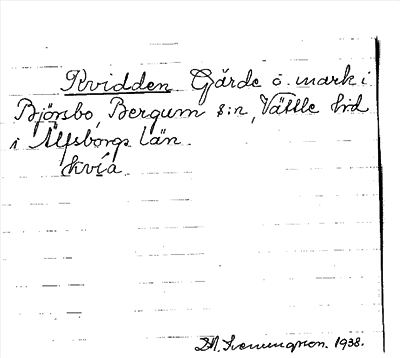 Kvidden Gärde o. mark i
Björsbo, Bergum s:n, Vättle hd
i Älfsborgs län.
kvía
1938.